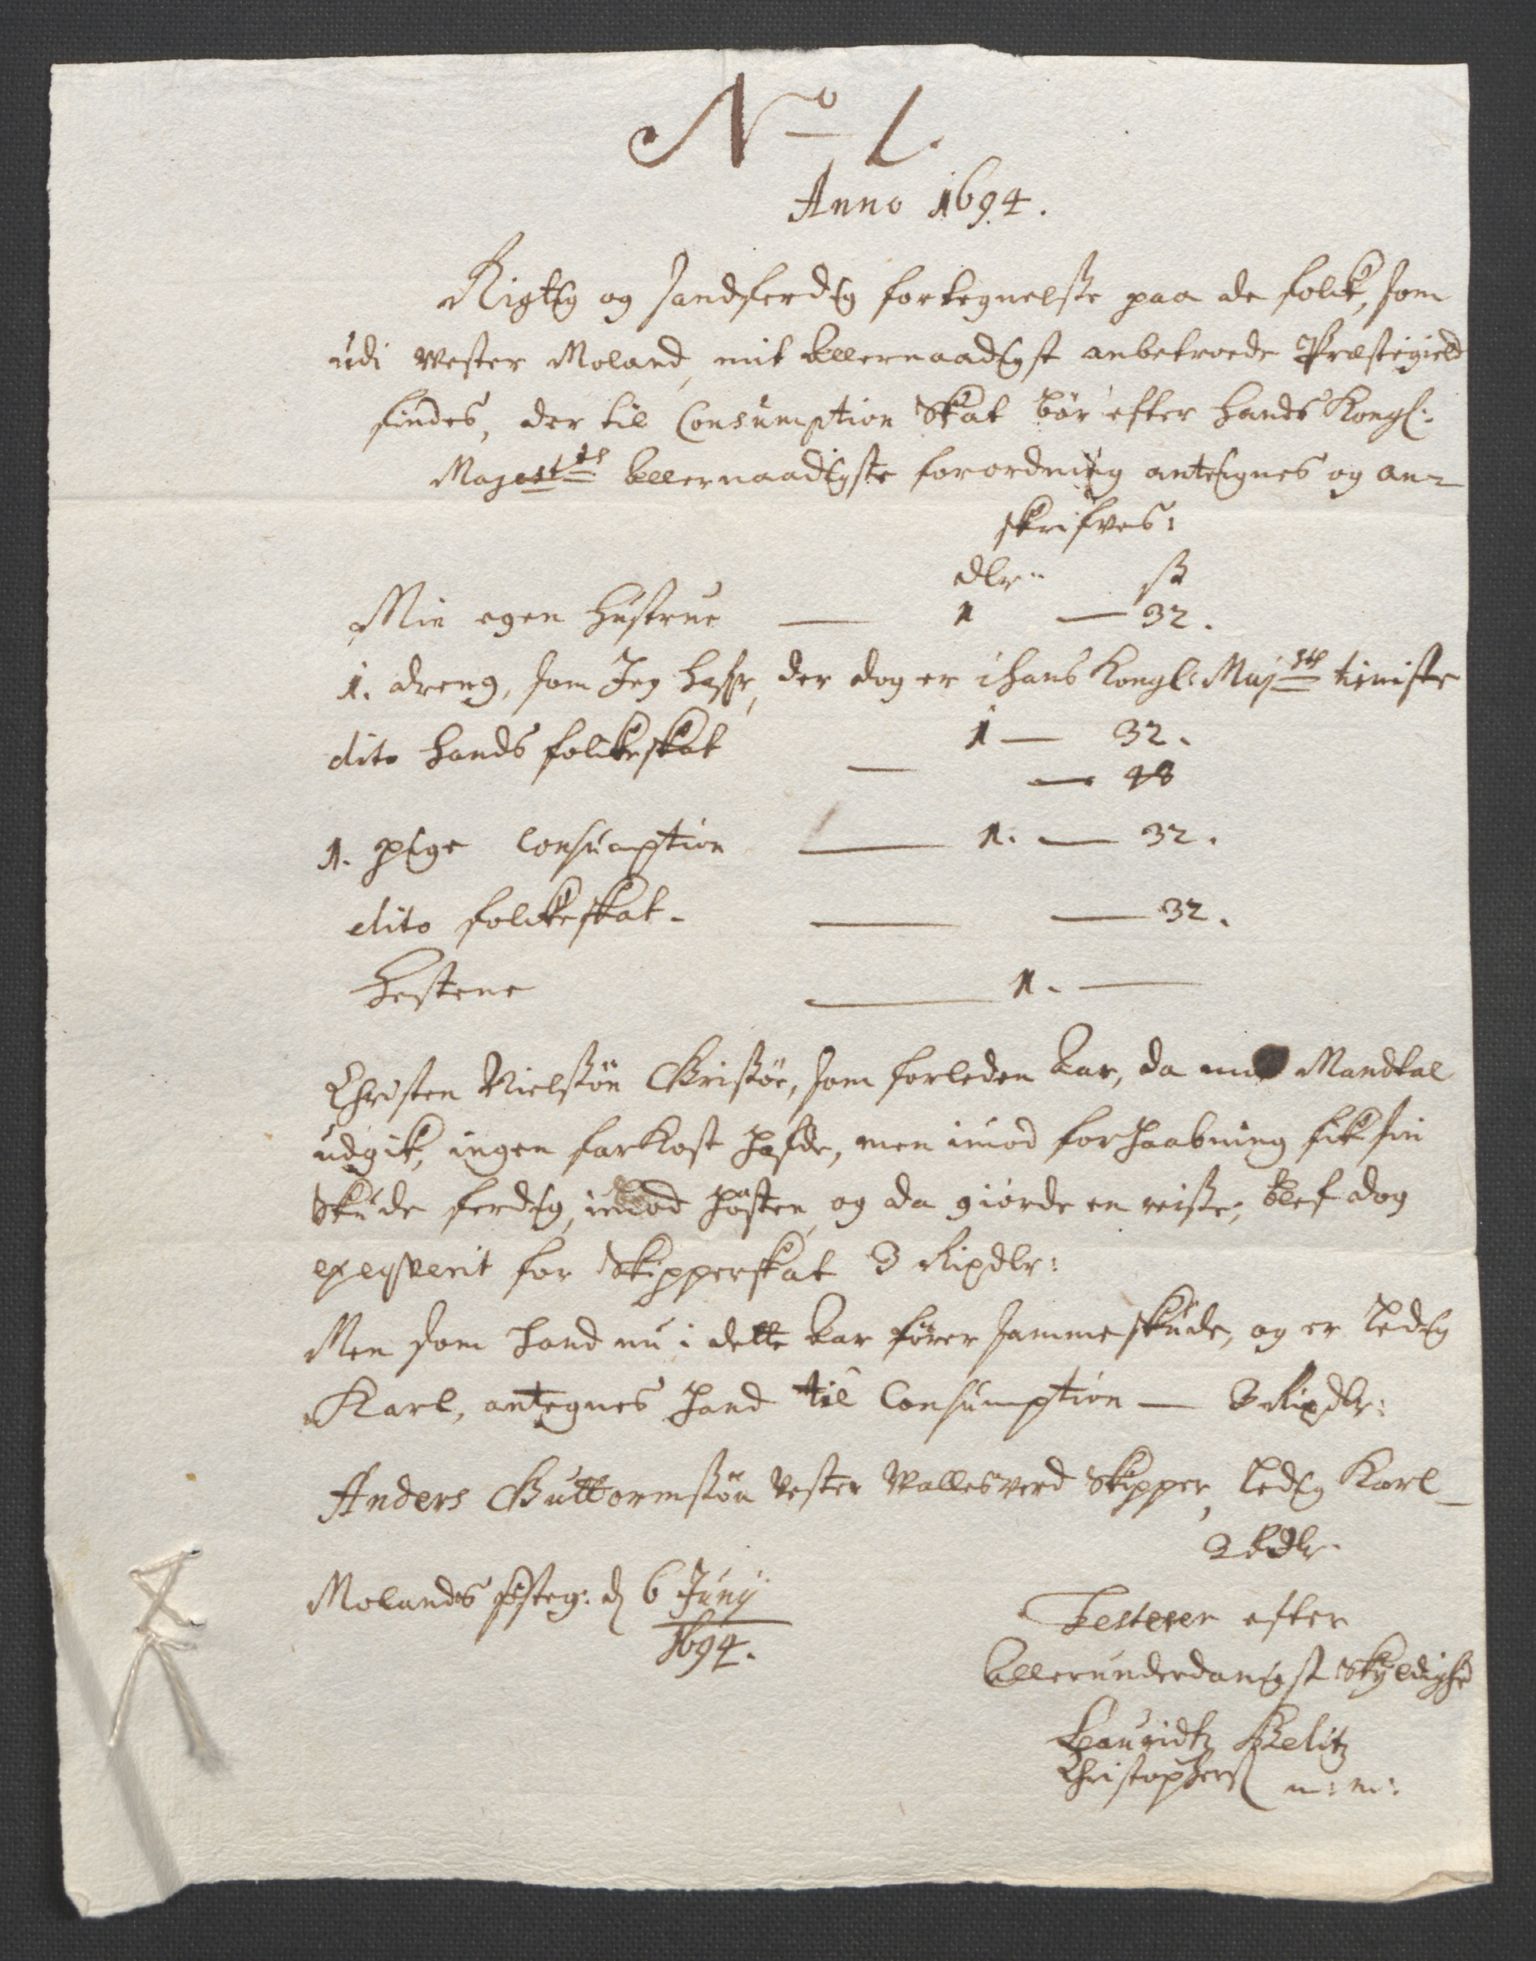 No 1.
Anno 1694.
Rigtig og sandferdig fortegnelsse paa de folck, som
udi Vester Moland, mit allernaadigst anbetroede Præstegield
findes, der til Consumption Skat bör efter hands Kongl:
Majestts allernaadigste forordning antegnes og an-
skrifves:
dlr ß
Min egen Hustrue — 1 — 32.
1. dreng, som Jeg hafr, der dog er i hans Kongl: Majsts tieniste
1 — 32.
dito hands folckeskat — — 48
1. pige Consumption — 1. — 32.
dito folckeskat — — 32.
Hestene — 1. —
Christen Nielssön Brissöe, som forleden Aar, da Mandtal
udgik, ingen farkost hafde, men imod forhaabning fik sin
Skude ferdig, imod hösten, og da giorde en reisse, blef dog
exeqverit for Skipperskat 3 Rixdlr:
Men som hand nu i dette Aar fører samme skude, og er ledig
Karl, antegnes hand til Consumption — 3 Rixdlr:
Anders Guttormssön Vester Vallesverd Skipper, ledig Karl —
2 Rdlr.
Molands psteg: d 6 Junij
1694.
Testerer efter
allerunderdanigst Skyldighed
Lauridtz
Christophers m: m: